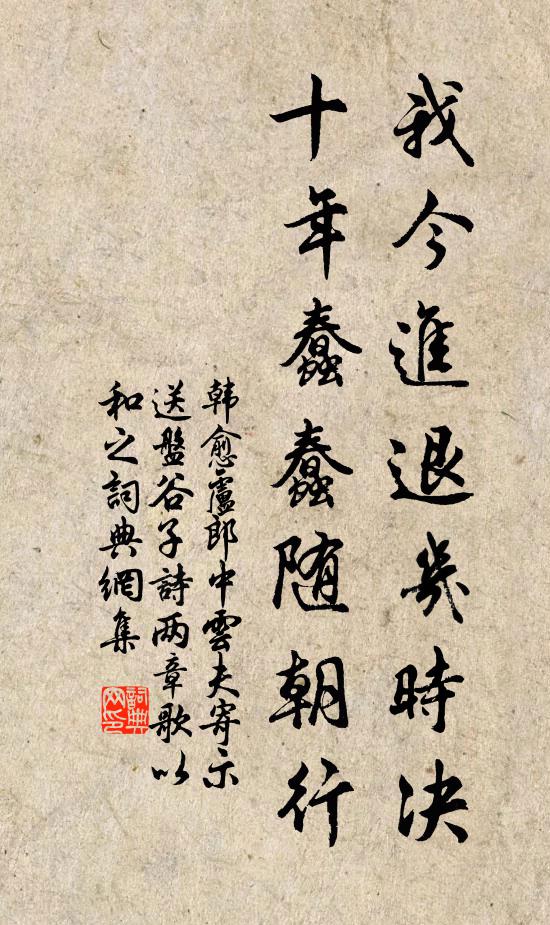 我今進退幾時決
十年蠢蠢随朝行
韩愈盧郎中雲夫寄示
送盤谷子詩两章歌以
和之詞典網集
詞典
网印